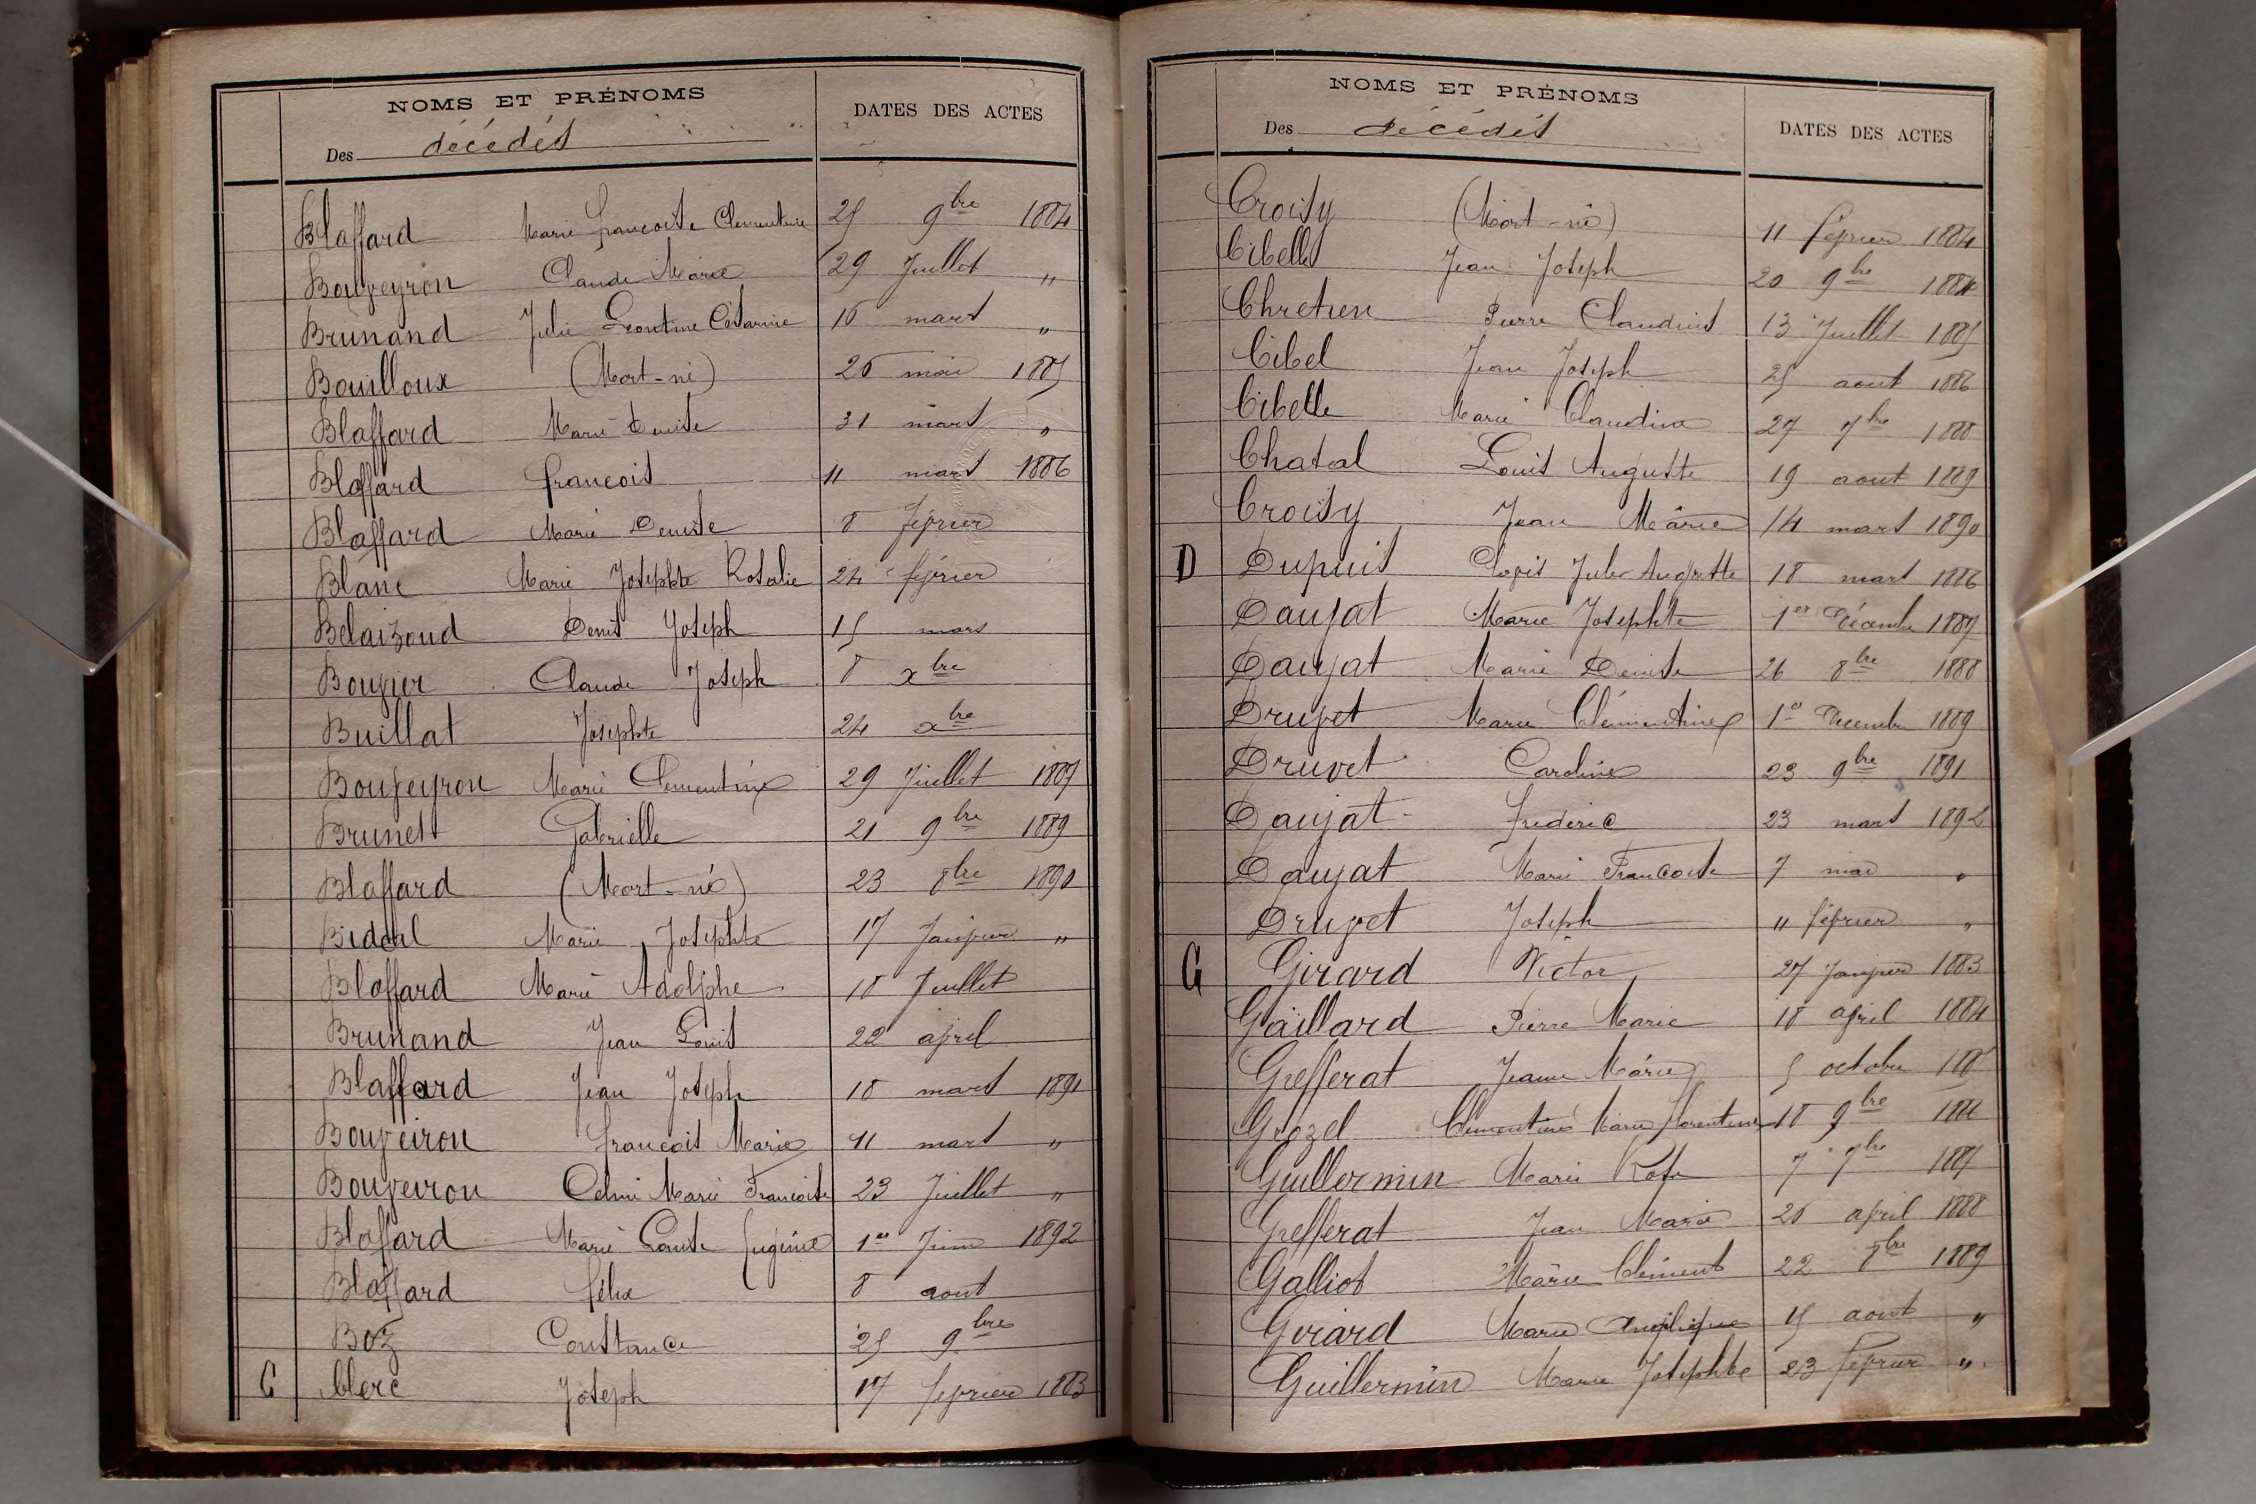 NOMS ET PRÉNOMS
Des décédés
DATES DES ACTES
Blaffard Marie françoise Clementine 25 9bre 1884
Bouveyron Claude Marie 29 Juillet "
Brunand Julie Leontine Césarine 16 mars "
Bouilloux (Mort-né) 26 mai 1885
Blaffard Marie Denise 31 mars "
Blaffard françois 11 mars 1886
Blaffard Marie Denise 8 février
Blanc Marie Josephte Rosalie 24 février
Belaizoud Denis Joseph 15 mars
Bouvier Claude Joseph 8 xbre
Buillat Josephte 24 xbre
Bouveyron Marie Clementine 29 Juillet 1887
Brunet Gabrielle 21 9bre 1889
Blaffard (Mort-né) 23 8bre 1890
Bidal Marie Josephte 17 Janvier "
Blaffard Marie Adolphe 18 Juillet
Brunand Jean Louis 22 avril
Blaffard Jean Joseph 18 mars 1891
Bouveiron françois Marie 11 mars "
Bouveyron Célina Marie Françoise 23 Juillet "
Blaffard Marie Louise Eugénie 1er Juin 1892
Blaffard félix 8 aout
Boz Constance 25 9bre
C Clerc Joseph 17 fevrier 1883
NOMS ET PRÉNOMS
Des décédés
DATES DES ACTES
Croisy (Mort-né) 11 février 1884
Cibelle Jean Joseph 20 9bre 1884
Chretien Pierre Claudius 13 Juillet 1885
Cibel Jean Joseph 25 aout 1886
Cibelle Marie Claudine 27 7bre 1888
Chatal Louis Auguste 19 aout 1889
Croisy Jean Marie 14 mars 1890
D Dupuis Clovis Jules Auguste 18 mars 1886
Daujat Marie Josephte 1er Décembre 1887
Daujat Marie Denise 26 8bre 1888
Druvet Marie Clémentine 1er Decembre 1889
Druvet Caroline 23 9bre 1891
Daujat frederic 23 mars 1892
Daujat Marie Françoise 7 mai "
Druvet Joseph 11 février "
G Girard Victor 27 Janvier 1883
Gaillard Pierre Marie 18 avril 1884
Grefferat Jeanne Marie 5 octobre
Grozel Clementine Marie florentine 18 9bre
Guillermin Marie Rose 7 7bre 1887
Grefferat Jean Marie 26 avril 1888
Galliot Marie Clément 22 8bre 1889
Girard Marie Angelique 15 aout "
Guillermin Marie Josephte 23 février "